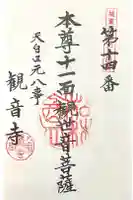 第十四番
本尊十一面観世音菩薩
天白区元八事
観音寺